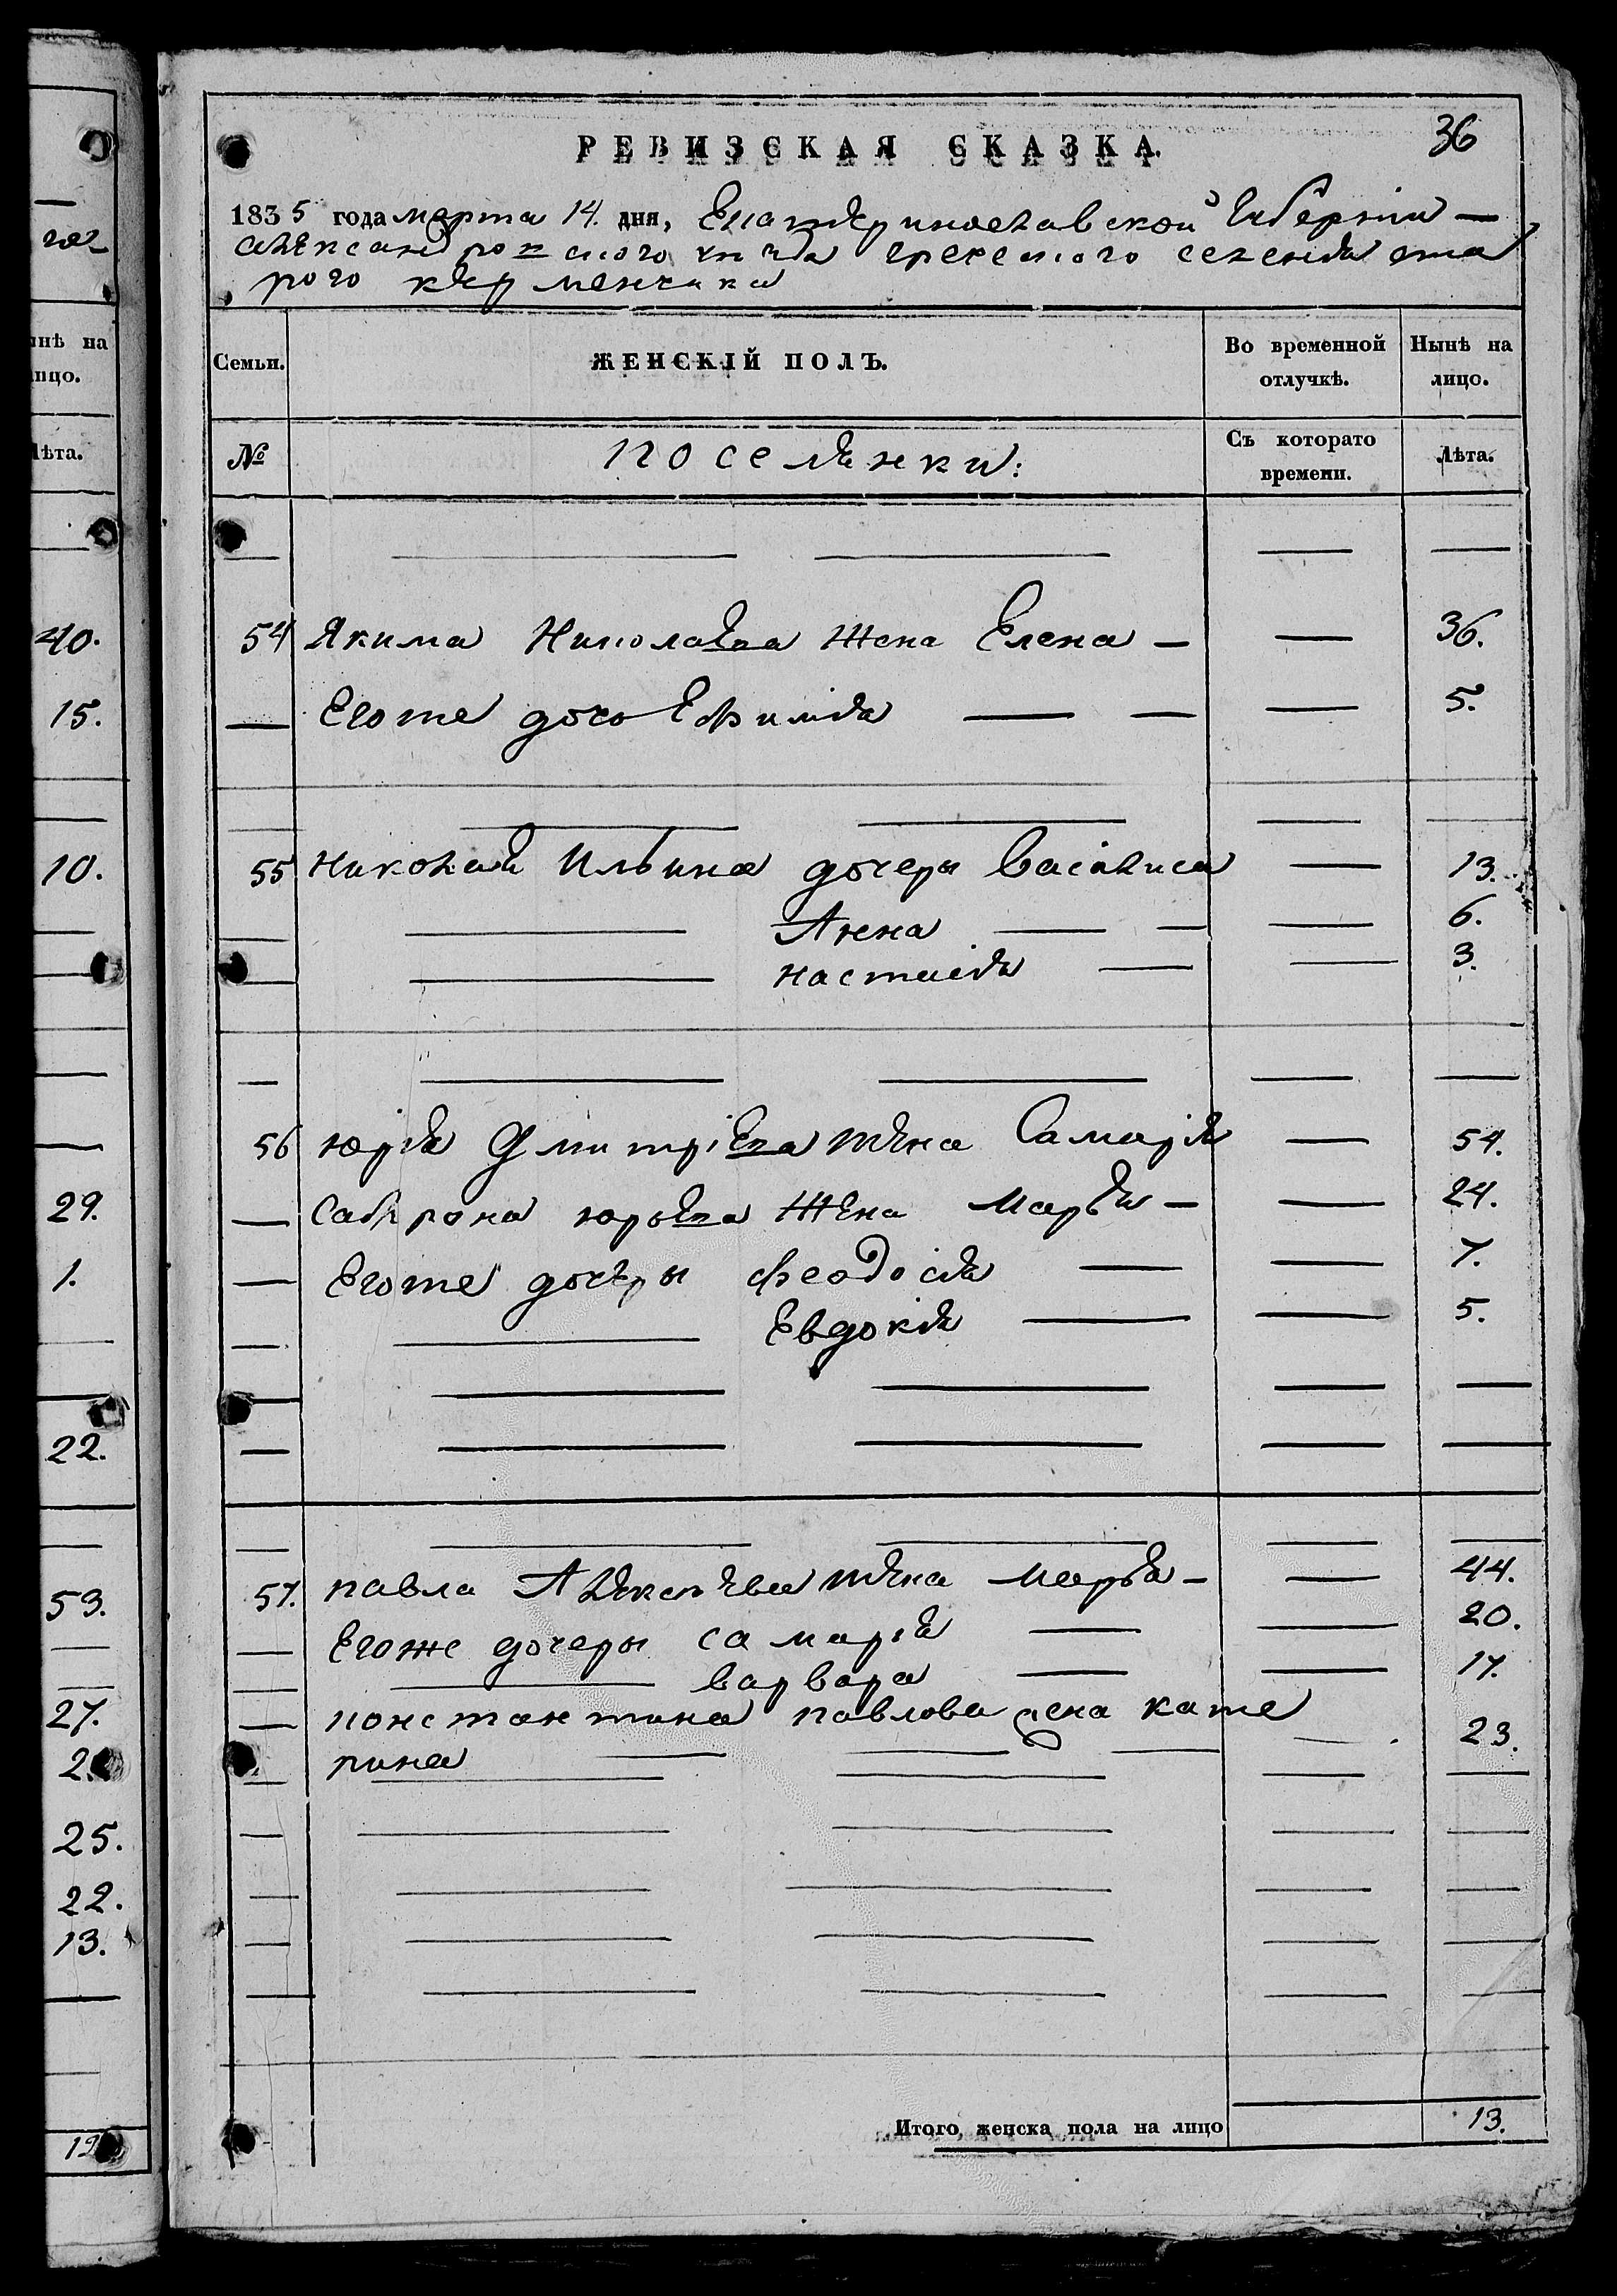 36
РЕВИЗСКАЯ СКАЗКА.
1835 года марта 14. дня, Екатѣринославской Губерніи —
алѣксандровского уезда греческого селенія ста
рого кѣрменчика
Семьи.
ЖЕНСКІЙ ПОЛЪ.
Во временной отлучкѣ.
Нынѣ на лицо.
№
поселянки:
Съ которато времени.
Лѣта.
54 Якима Николаѣва жена Елена — — 36.
— Егоже дочь Ефимія — — — 5.
55 николая Ильина дочеры Василиса — 13.
— Анна — — — 6.
— настасія — — 3.
56 юрія Дмитріева жѣна Самарія — 54.
— Сафрона юрьѣва жѣна Марья — — 24.
— Егоже дочѣры феодосія — — 7.
— Евдокія — — 5.
57. павла Алѣксѣева жѣна Марья — — 44.
— Егоже дочеры самарія — — 20.
— варвара — — 17.
— константина павлова жена кате
рина — — — 23.
Итого женска пола на лицо 13.
инѣ на
лицо.
Лѣта.
40.
15.
10.
29.
1.
22.
53.
27.
25.
22.
13.